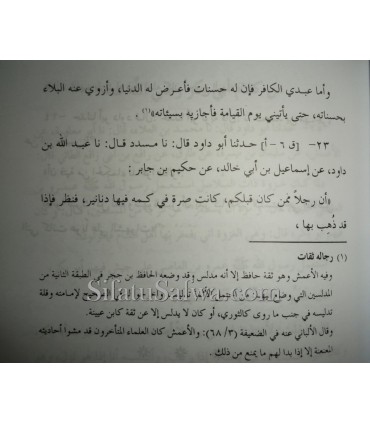 وأما عبدي الكافر فإن له حسنات فأعرض له الدنيا، وأزوي عنه البلاء
بحسناته، حتى يأتيني يوم القيامة فأجازيه بسيئاته»(١).
٢٣- [ق ٦ - أ] حدثنا أبو داود قال: نا مسدد قال: نا عبد الله بن
داود، عن إسماعيل بن أبي خالد، عن حكيم بن جابر:
«أن رجلاً ممن كان قبلكم، كانت صرة في كمه فيها دنانير، فنظر فإذا
قد ذُهِبَ بها ،
(١) رجاله ثقات
وفيه الأعمش وهو ثقة حافظ إلا أنه مدلس وقد وضعه الحافظ بن حجر في الطبقة الثانية من
المدلسين التي وضع بقوله: من احتمل الأئمة تدليسه وأخرجوا له في الصحيح لإمامته وقلة
تدليسه في جنب ما روى كالثوري، أو كان لا يدلس إلا عن ثقة كابن عيينة.
وقال الألباني عنه في الضعيفة (٣/ ٦٨): والأعمش كان العلماء المتأخرون قد مشوا أحاديثه
المعنعنة إلا إذا بدا لهم ما يمنع من ذلك .
SifatuSafwa.com